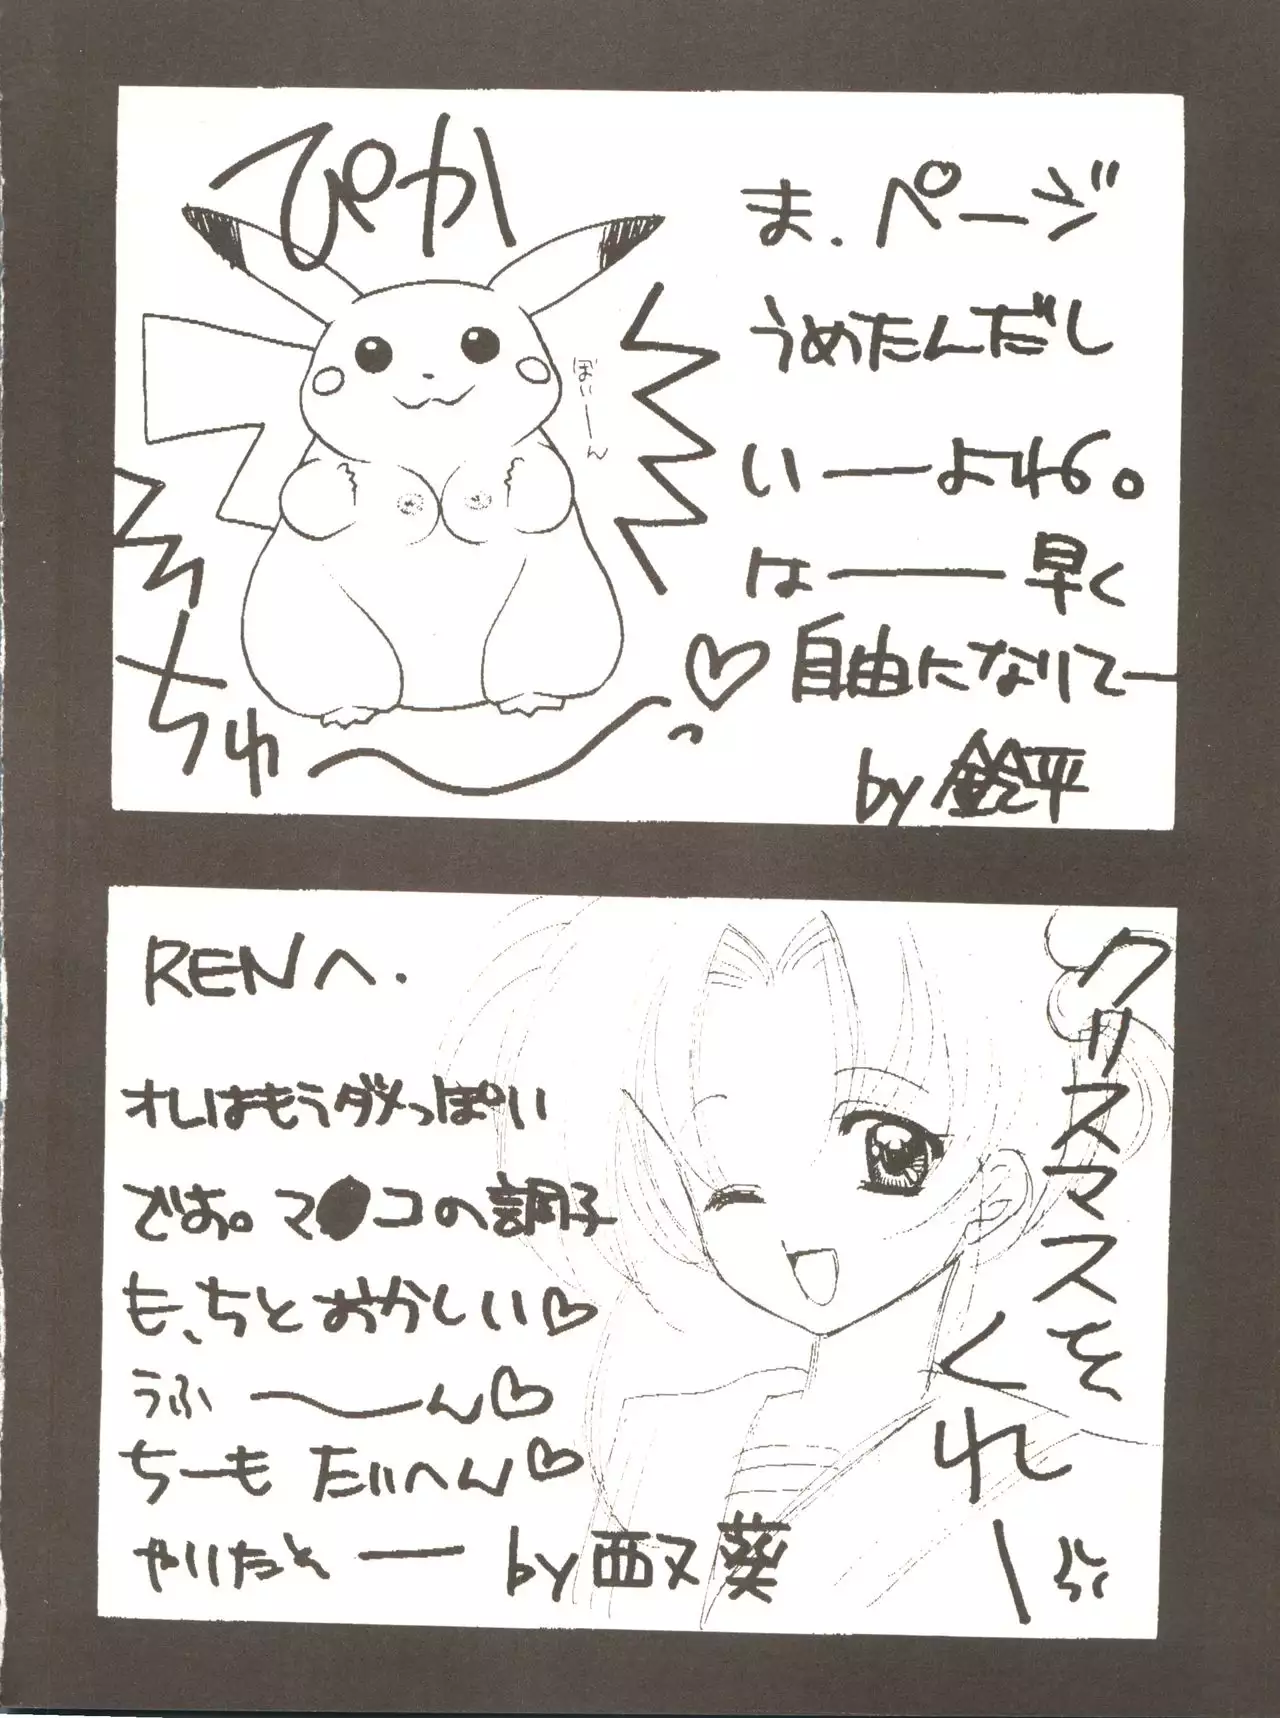 ぴか
ちゅ
ぼいーん
ま、ページ
うめたんだし
いーよね。
はー早く
自由になりてー
by 鈴平
RENへ.
オレはもうダメっぽい
です。マ●コの調子
も、ちとおかしい♡
うふ〜ん♡
ちーも たいへん♡
やりたそー
クリスマスを
くれー